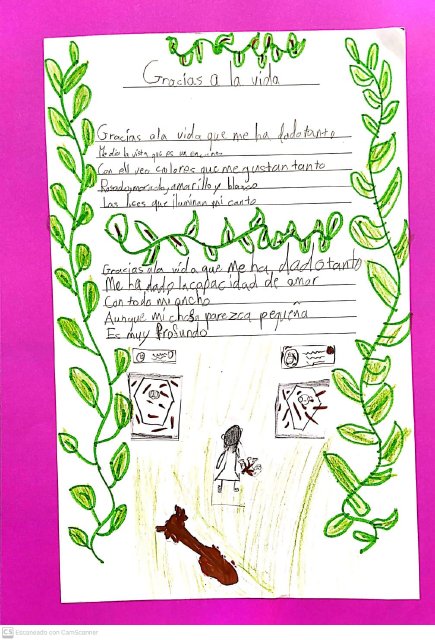 Gracias a la vida
Gracias a la vida que me ha dado tanto
Me dio la vista que es un
Con ell veo colores que me gustan tanto
Rosado, morado, amarillo y blanco
Las luces que iluminan mi canto
Gracias a la vida que me ha dado tanto
Me ha dado la capacidad de amar
Con todo mi ancho
Aunque mi parezca pequeña
Es muy Profundo
CS Escaneado con CamScanner